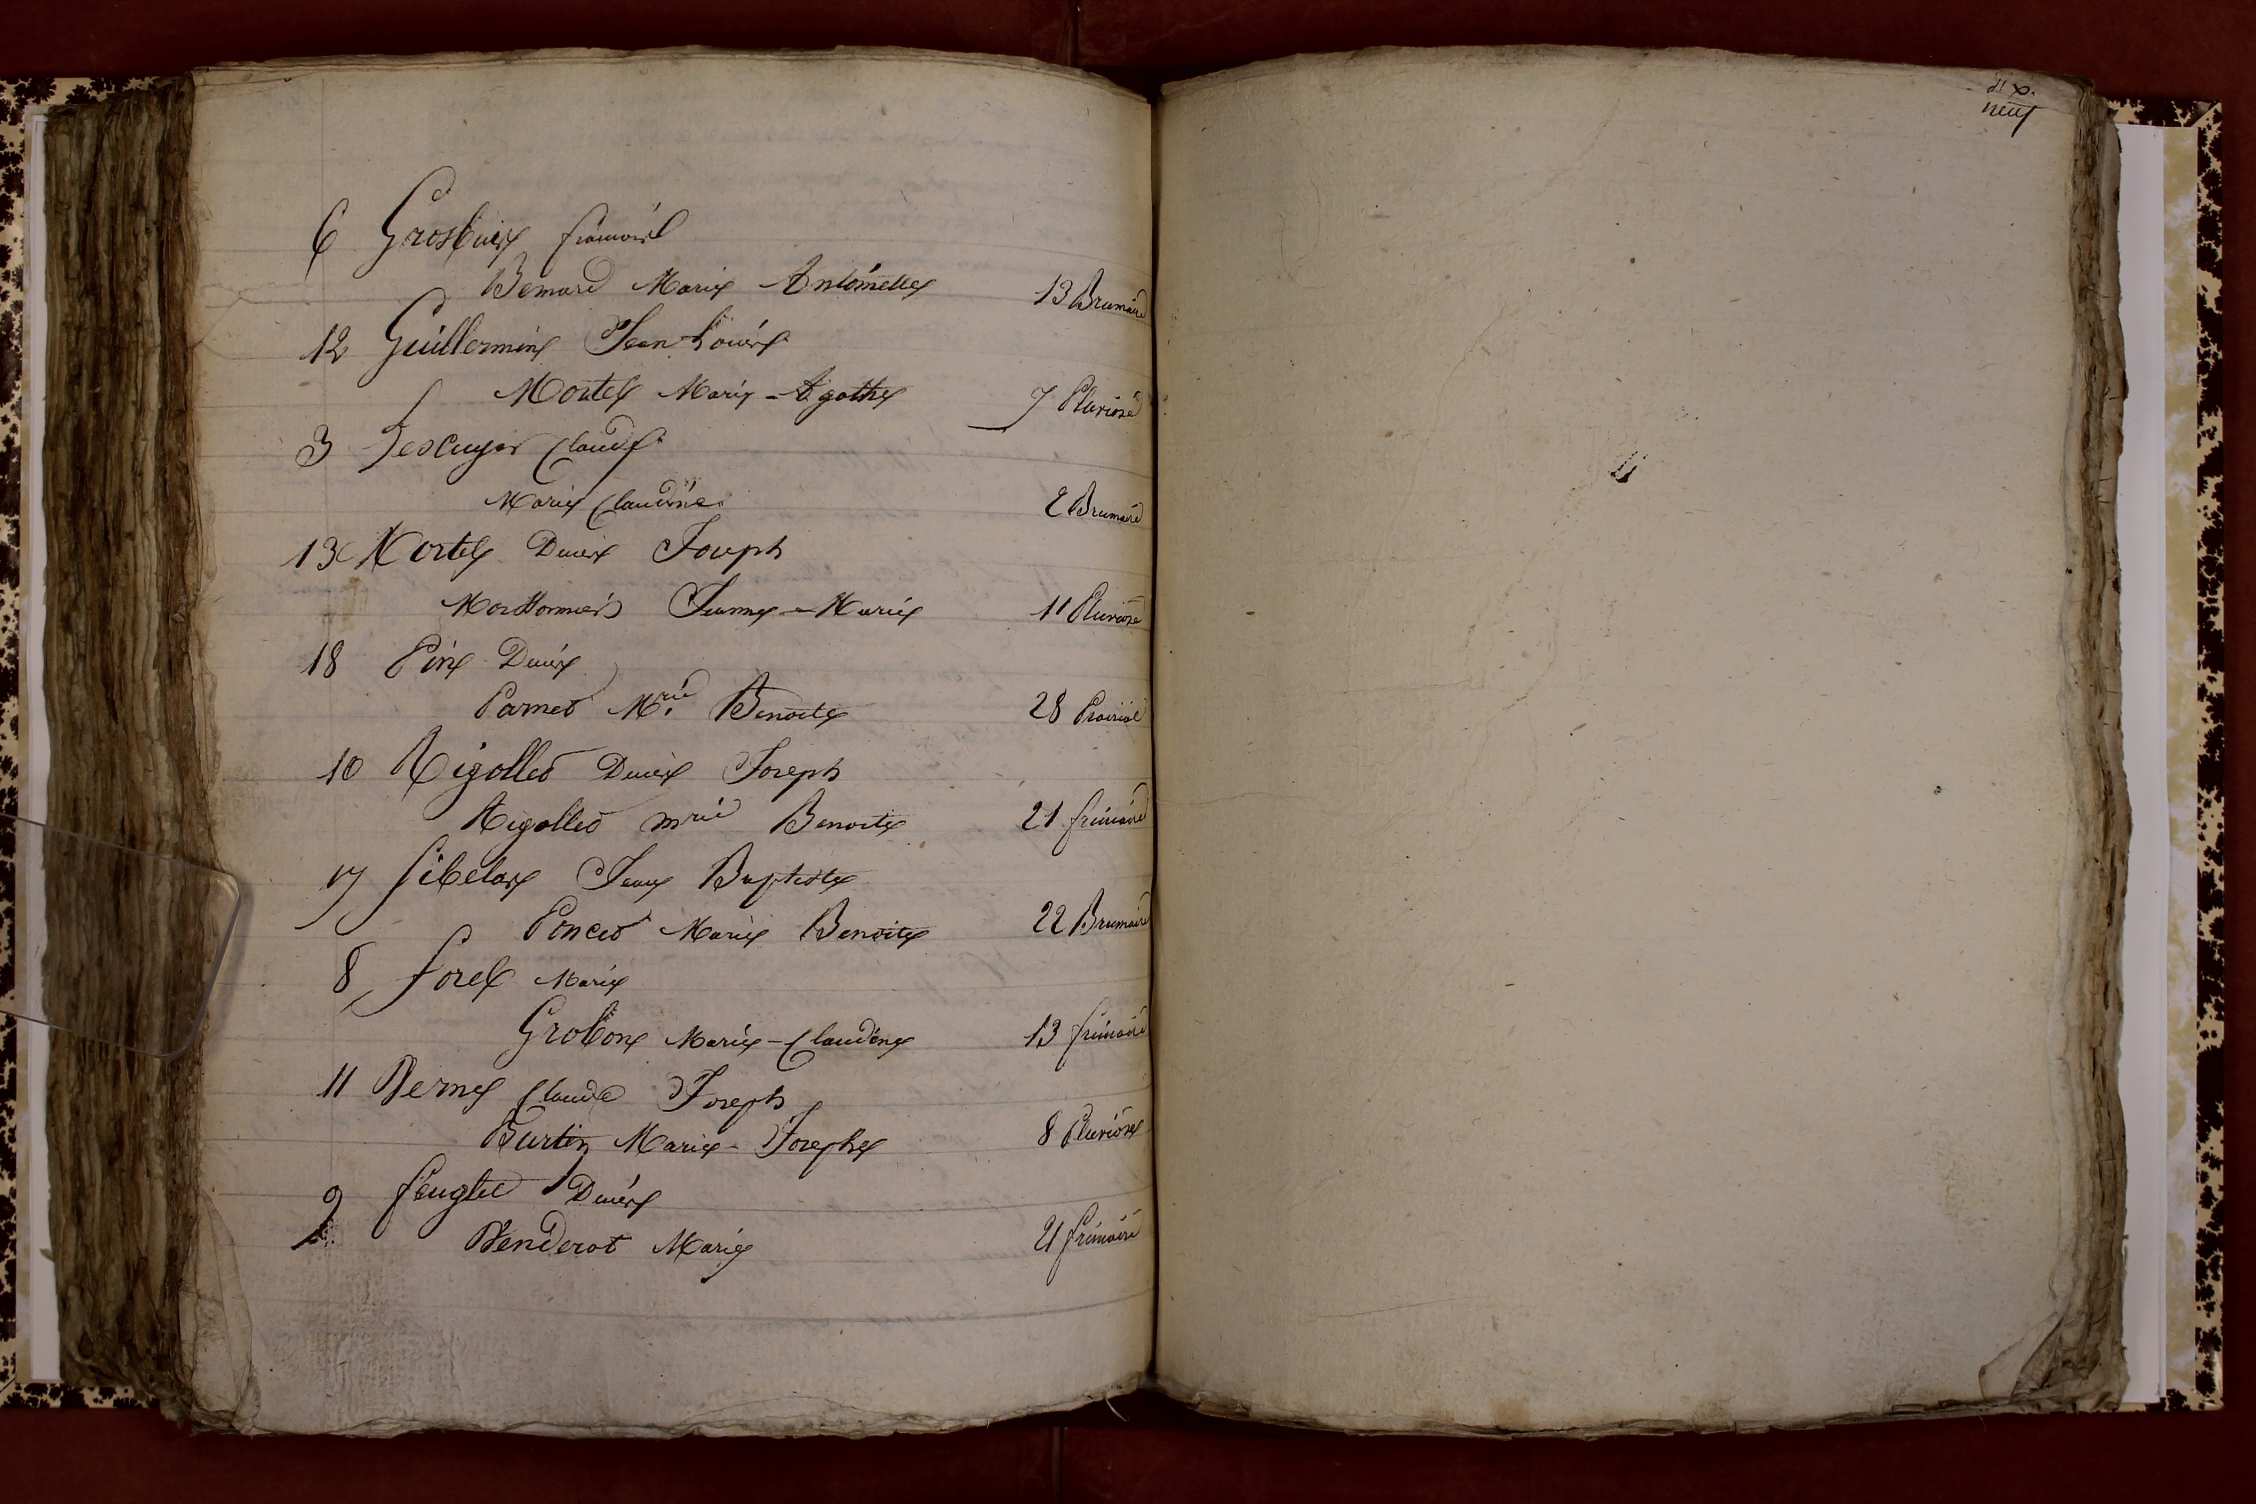 6 Grosbuis françois
Bernard Marie Antoinette 13 Brumaire
12 Guillermin Jean Louis
Mortel Marie-Agathe 7 Pluviose
3 Lescuyer Claude
Marie Claudine 2 Brumaire
13 Mortel Denis Joseph
Jeanne-Marie 11 Pluviose
18 Pin Denis
Parnet Mrie Benoite 28 Prairial
10 Rigollet Denis Joseph
Rigollet mrie Benoite 21 frimaire
17 Sibelas Jean Baptiste
Poncet Marie Benoite 22 Brumaire
8 Sorel Marie
Grobon Marie-Claudine 13 frimaire
11 Verne Claude Joseph
Burtin Marie-Josephe 8 Pluviose
9 feuglet Denis
Venderot Marie 21 frimaire
dix
neuf